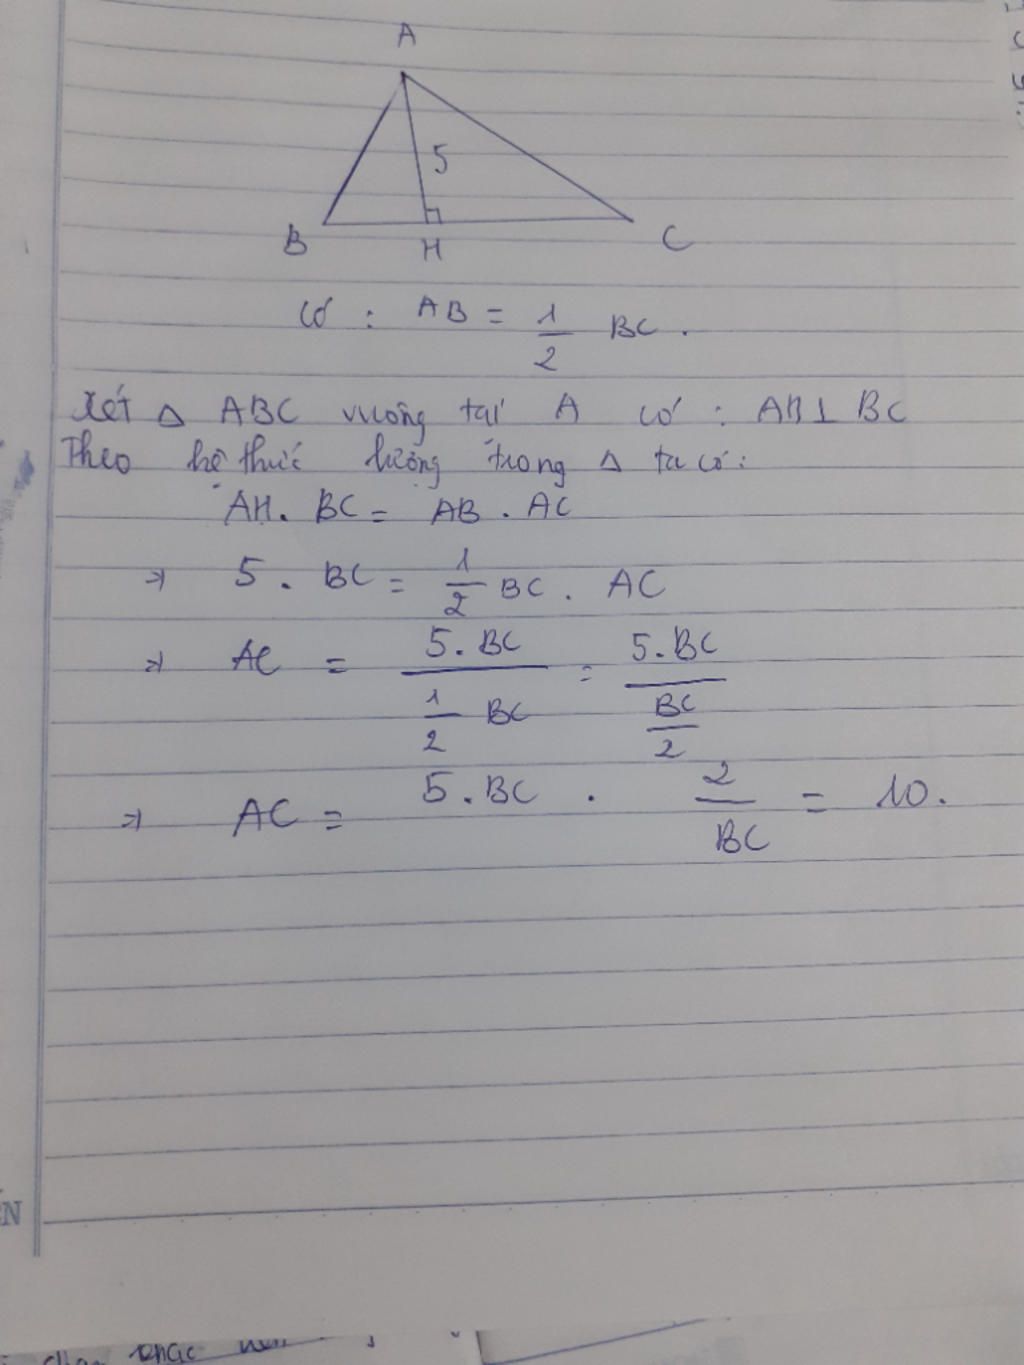 A
5
B H C
Có : AB = 1/2 BC .
Xét Δ ABC vuông tại A có : AB ⊥ BC
Theo hệ thức lượng trong Δ ta có :
AH . BC = AB . AC
⇒ 5 . BC = 1/2 BC . AC
⇒ AC = 5.BC / (1/2 BC) = 5.BC / (BC/2)
⇒ AC = 5.BC . 2/BC = 10.